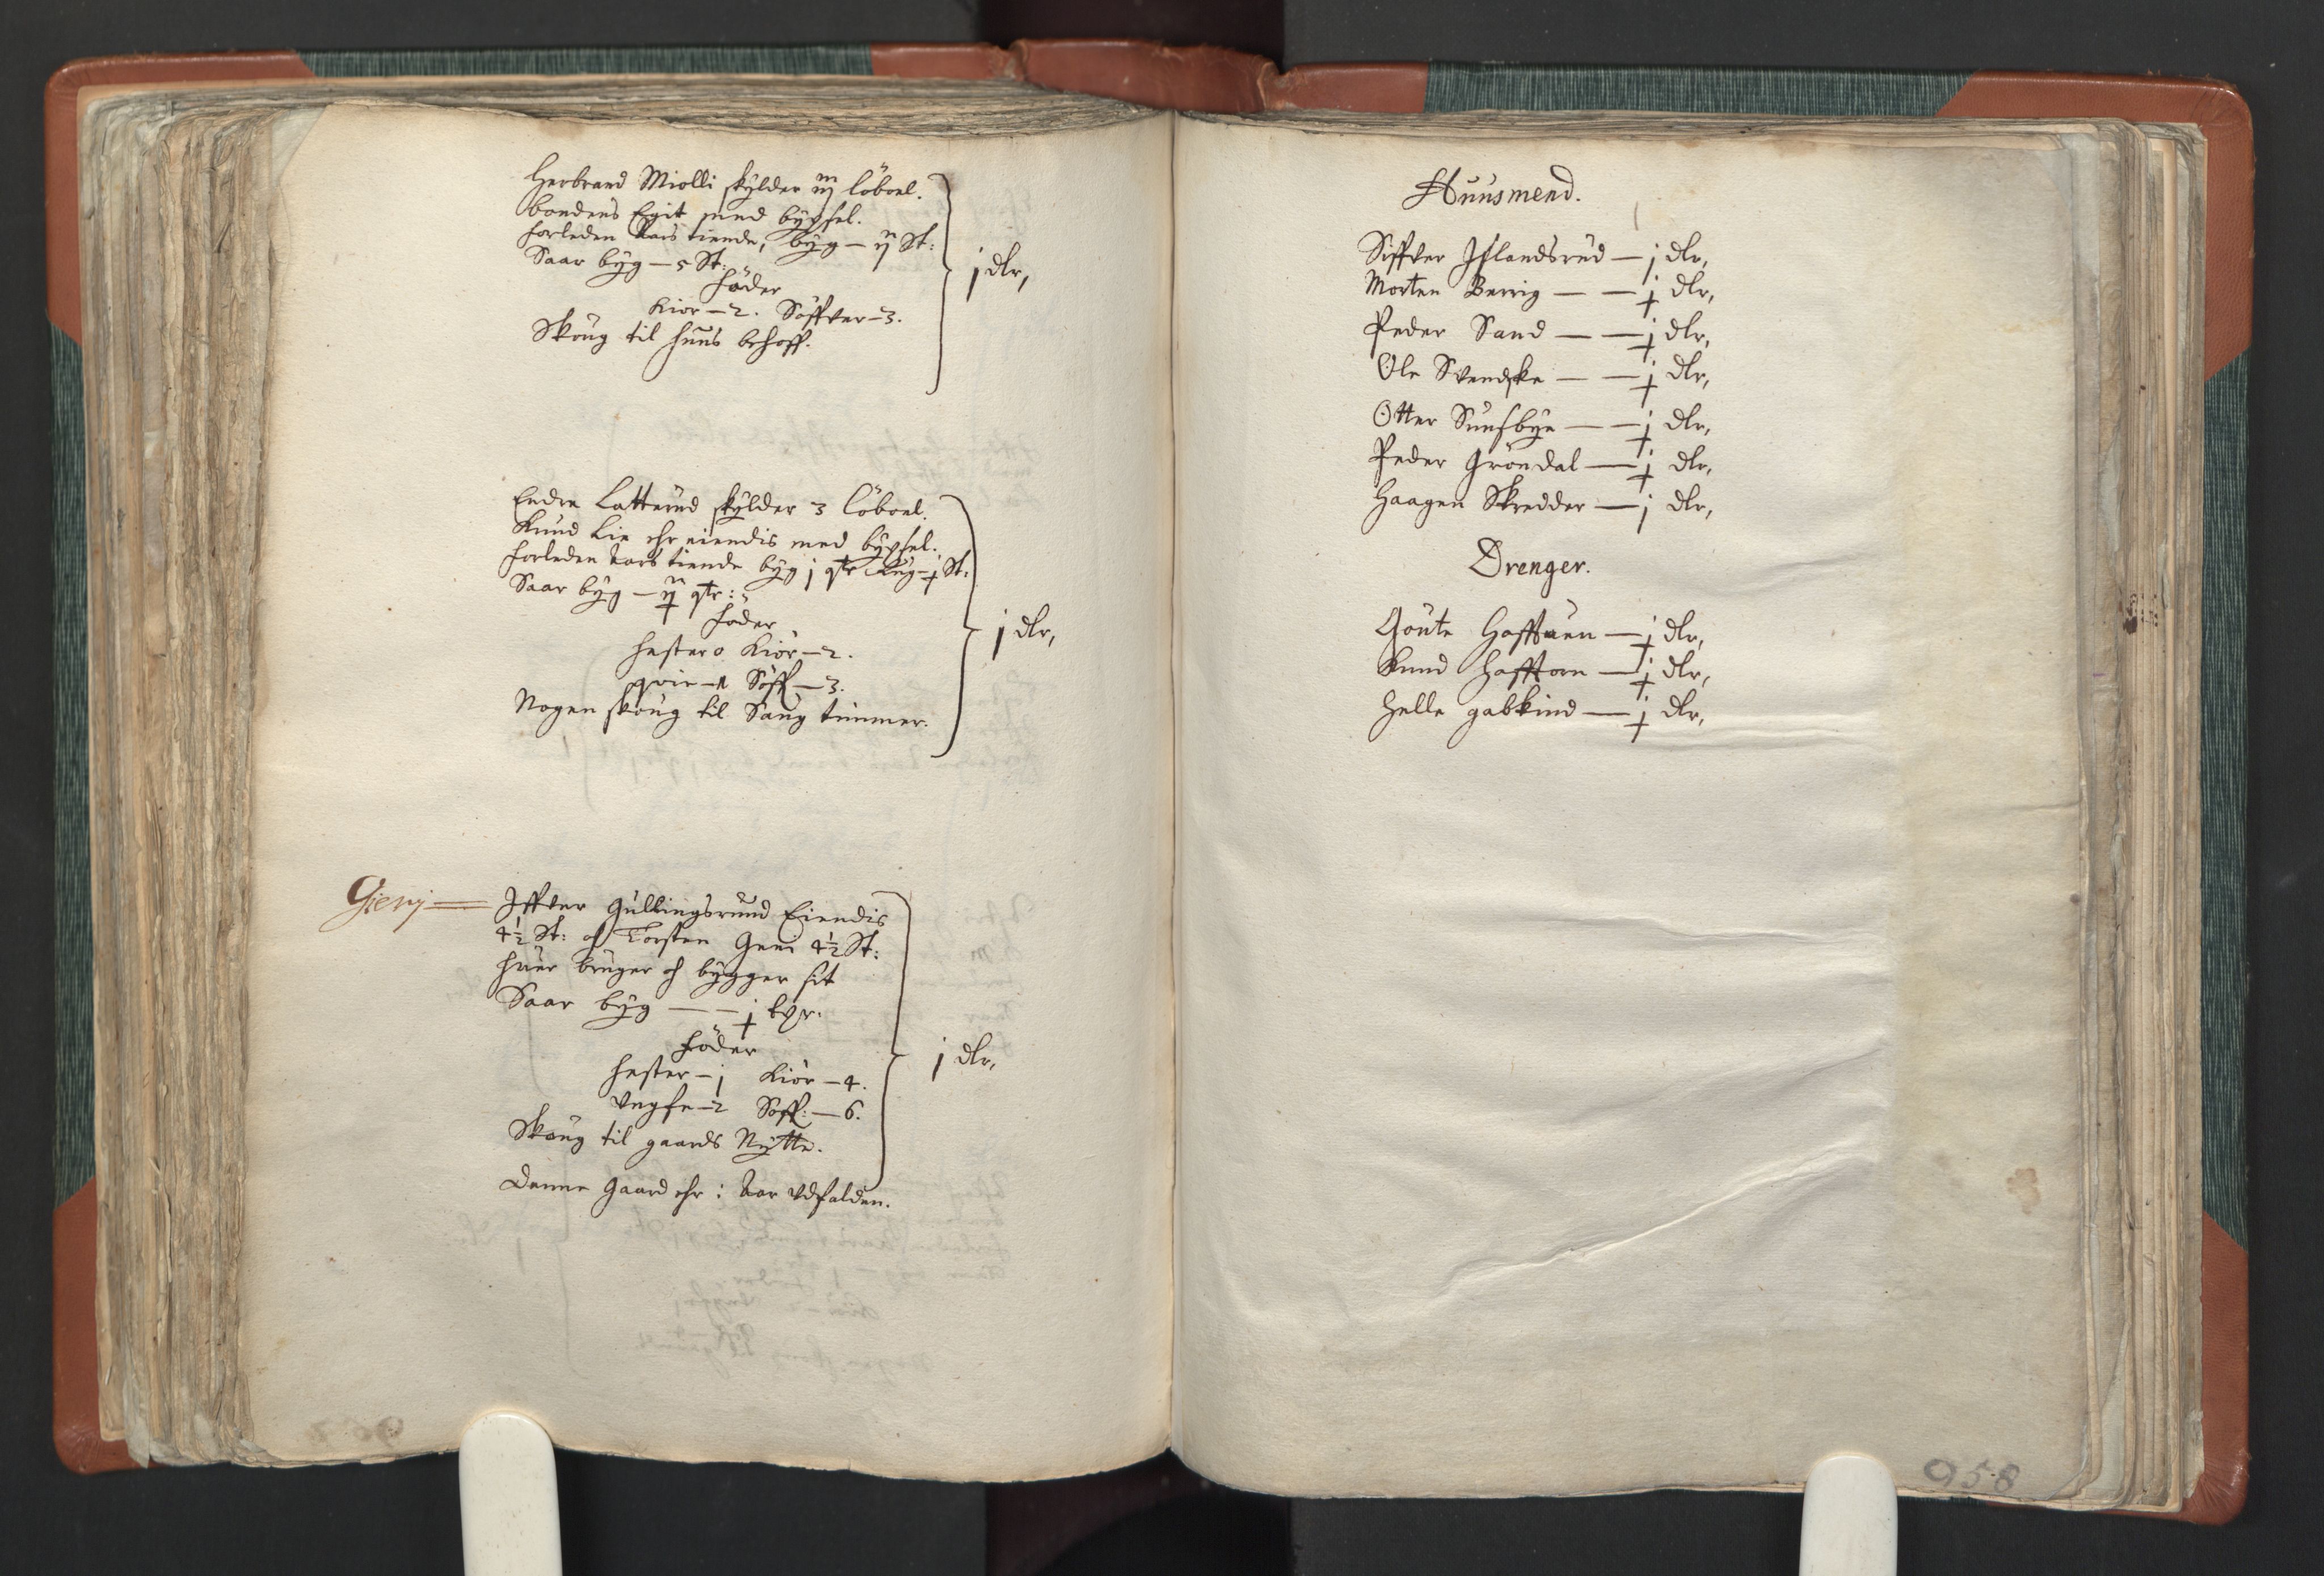 Herbrand Miolli skylder iij löboel.
bondens Egit med bÿxsel.
forleden Aars tiende, bÿg — ij St:
Saar bÿg — 5 St:
föder
Kiör — 2. Söffuer — 3.
Skoug til huus behoff.
j dlr,
Endre Latterud skylder 3 löboel.
Knud Lie ehr eiendis med bÿxsel.
forleden Aars tiende bÿg j qtr Rug — ½ St:
Saar bÿg — ij qtr:
föder
hester 0 Kiör — 2.
qvie — 1 Söff — 3.
Nogen skoug til Saug timmer.
j dlr,
Gieni
Iffuer Gullingsruud Eiendis
4½ St: oc Torsten Geni 4½ St:
huer bruger oc bygger sit
Saar bÿg — — ½ tdr.
föder
hester — j Kiör — 4.
Ungfe — 2 Söff: — 6.
Skoug til gaards Nÿtte.
Denne Gaard ehr i Aar udfalden.
j dlr,
Huusmend.
Siffuer Islandsrud — j dlr,
Morten Berrig — — ½ dlr,
Peder Sand — — ½ dlr,
Ole Svendske — — ½ dlr,
Otter Sunsbye — — ½ dlr,
Peder Gröndal — ½ dlr,
Haagen Skredder — j dlr,
Drenger.
Goute Hafftuen — ½ dlr,
Knud Hafftorn — ½ dlr,
Helle gabkind — ½ dlr,
958